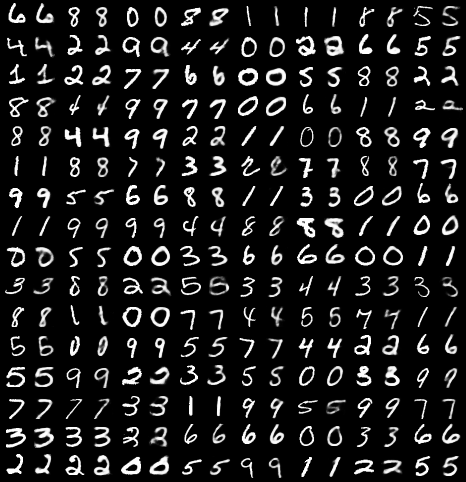 6 6 8 8 0 0 8 8 1 1 1 1 8 8 5 5
4 4 2 2 9 9 4 4 0 0 2 2 6 6 5 5
1 1 2 2 7 7 6 6 0 0 5 5 8 8 2 2
8 8 4 4 9 9 7 7 0 0 6 6 1 1 2 2
8 8 4 4 9 9 2 2 1 1 0 0 8 8 9 9
1 1 8 8 7 7 3 3 2 2 7 7 8 8 7 7
9 9 5 5 6 6 8 8 1 1 3 3 0 0 6 6
1 1 9 9 9 9 4 4 8 8 8 8 1 1 0 0
0 0 5 5 0 0 3 3 6 6 6 6 0 0 1 1
3 3 8 8 2 2 5 5 3 3 4 4 3 3 3 3
8 8 1 1 0 0 7 7 4 4 5 5 7 7 1 1
5 5 0 0 9 9 5 5 7 7 4 4 2 2 6 6
5 5 9 9 2 2 3 3 5 5 0 0 3 3 9 9
7 7 7 7 3 3 1 1 9 9 5 5 9 9 7 7
3 3 3 3 2 2 6 6 6 6 0 0 3 3 6 6
2 2 2 2 0 0 5 5 9 9 1 1 2 2 5 5